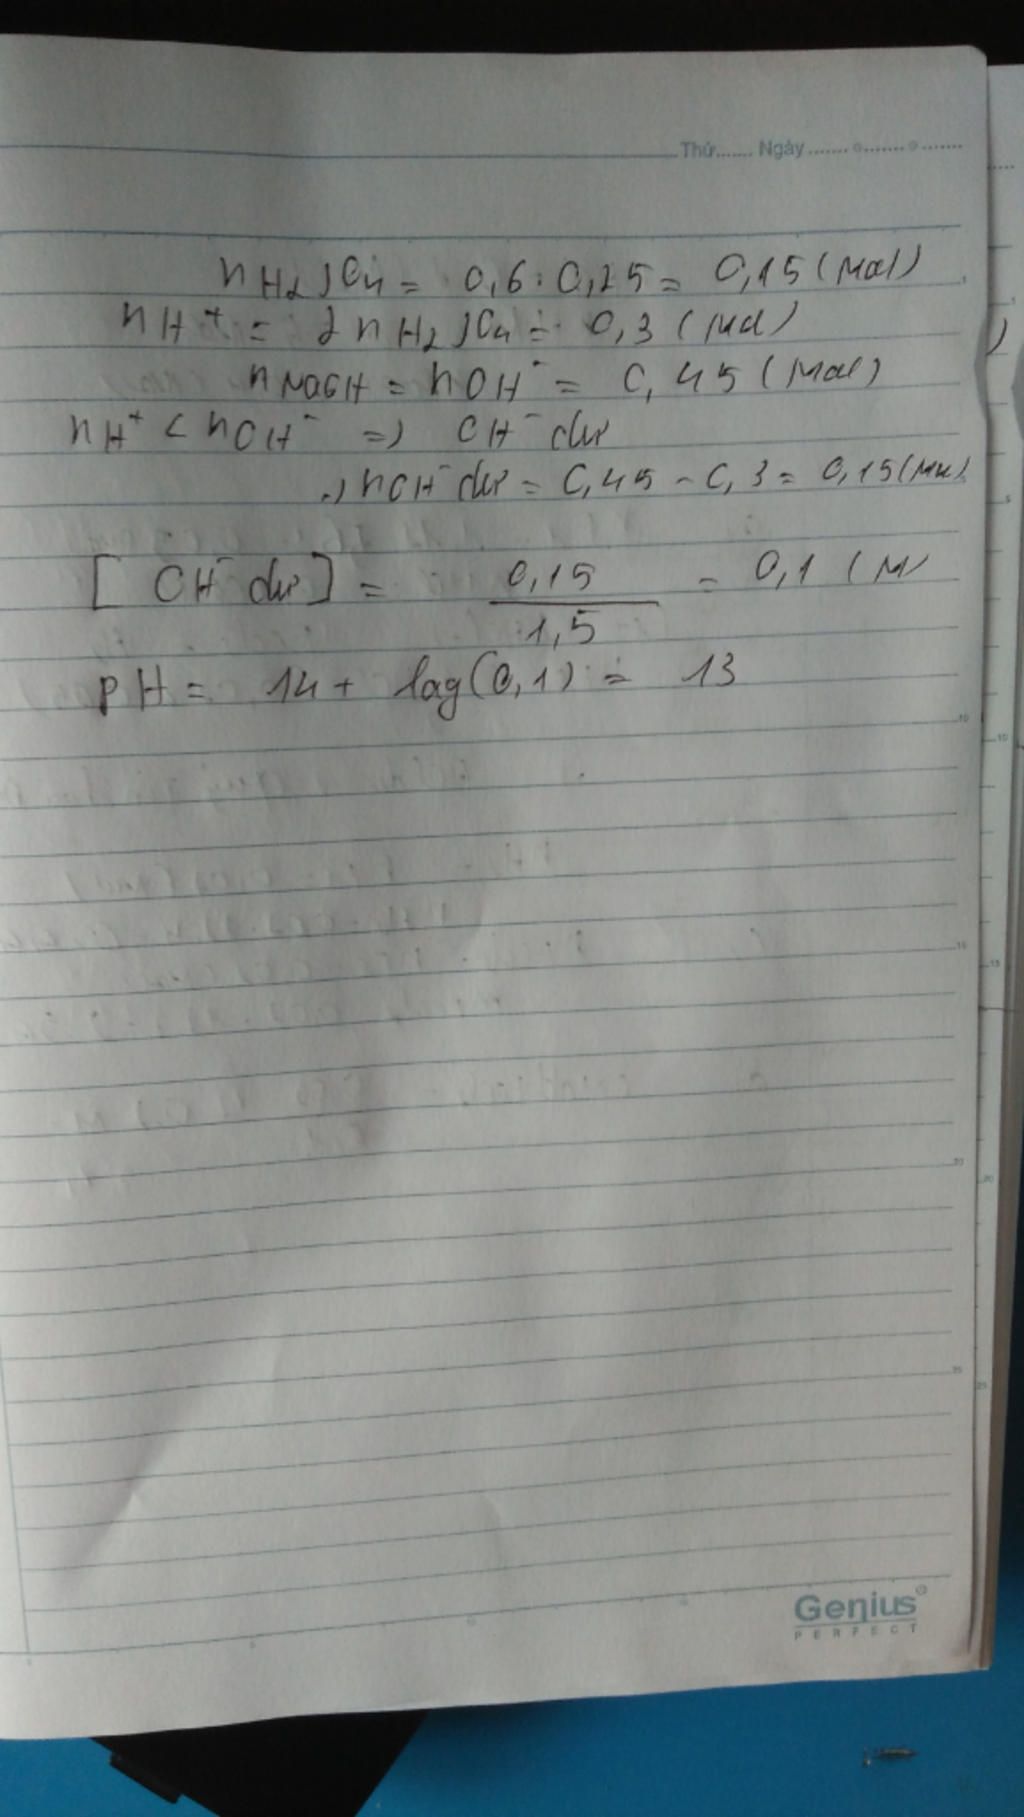 Thứ....... Ngày .......
nH₂SO₄ = 0,6 . 0,25 = 0,15 (mol)
nH⁺ = 2nH₂SO₄ = 0,3 (mol)
nNaOH = nOH⁻ = 0,45 (mol)
nH⁺ < nOH⁻ => OH⁻ dư
=> nOH⁻ dư = 0,45 - 0,3 = 0,15 (mol)
[OH⁻ dư] = 0,15 / 1,5 = 0,1 (M
pH = 14 + log(0,1) = 13
Genius
PERFECT